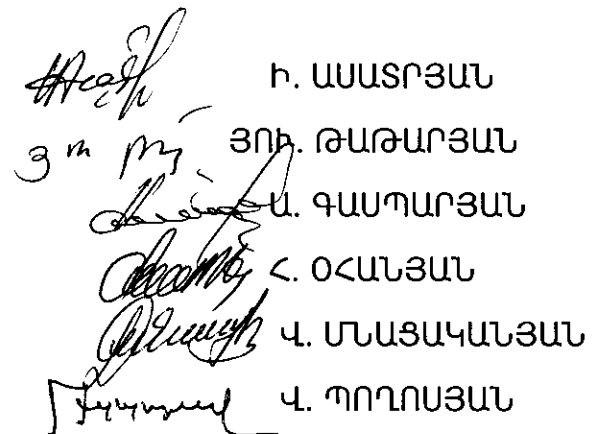 Ի. ԱՍԱՏՐՅԱՆ
ՅՈՒ. ԹԱԹԱՐՅԱՆ
Ա. ԳԱՍՊԱՐՅԱՆ
Հ. ՕՀԱՆՅԱՆ
Վ. ՄՆԱՑԱԿԱՆՅԱՆ
Վ. ՊՈՂՈՍՅԱՆ